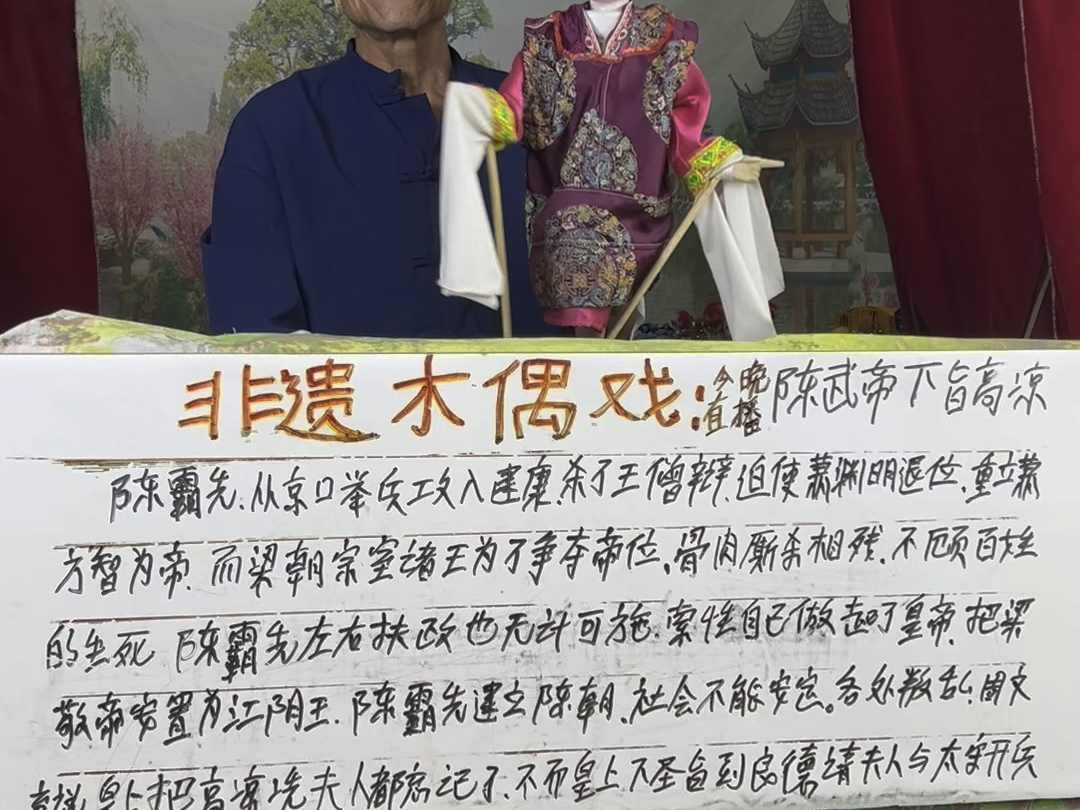 非遗木偶戏:今晚直播 陈武帝下旨高凉
陈霸先.从京口举兵攻入建康.杀了王僧辩.迫使萧渊明退位.重立萧
方智为帝.而梁朝宗室诸王为了争夺帝位.骨肉厮杀相残.不顾百姓
的生死 陈霸先左右扶政也无计可施.索性自己做起了皇帝.把梁
敬帝安置为江阴王.陈霸先建立陈朝.社会不能安定。各处叛乱.周文
皇上把高凉冼夫人都忘记了.不而皇上下圣旨到良德请夫人与太宗开兵